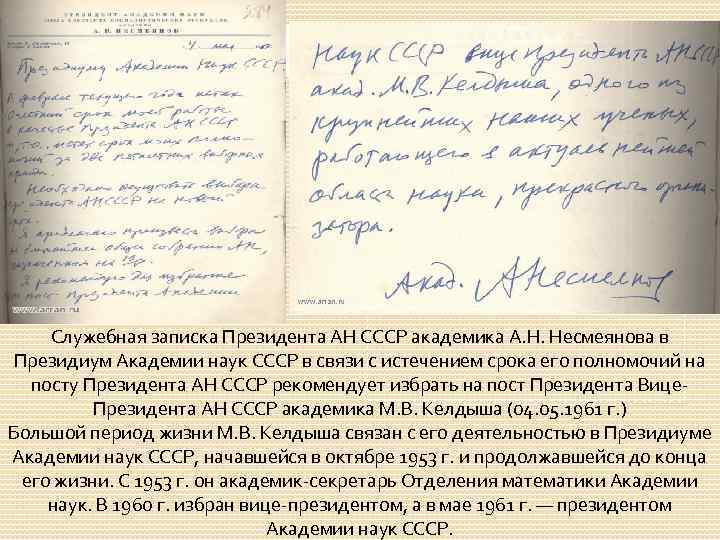 ПРЕЗИДЕНТ АКАДЕМИИ НАУК
А. Н. НЕСМЕЯНОВ
4 мая
Президиуму Академии Наук СССР
В феврале текущего года истек
срок моей работы
в качестве Президента АН СССР
за две
Необходимо осуществить выборы
Президента АН СССР на новый
срок.
Я предлагаю произвести выборы
общего собрания АН,
на
Я рекомендую для избрания
на пост Президента Академии
www.arran.ru
Наук СССР вице президента АН СССР
акад. М.В. Келдыша, одного из
крупнейших наших ученых,
работающего в актуальнейшей
области науки, прекрасного органи-
затора.
Акад. А Несмеянов
www.arran.ru
Служебная записка Президента АН СССР академика А.Н. Несмеянова в
Президиум Академии наук СССР в связи с истечением срока его полномочий на
посту Президента АН СССР рекомендует избрать на пост Президента Вице-
Президента АН СССР академика М.В. Келдыша (04.05.1961 г.)
Большой период жизни М.В. Келдыша связан с его деятельностью в Президиуме
Академии наук СССР, начавшейся в октябре 1953 г. и продолжавшейся до конца
его жизни. С 1953 г. он академик-секретарь Отделения математики Академии
наук. В 1960 г. избран вице-президентом, а в мае 1961 г. — президентом
Академии наук СССР.